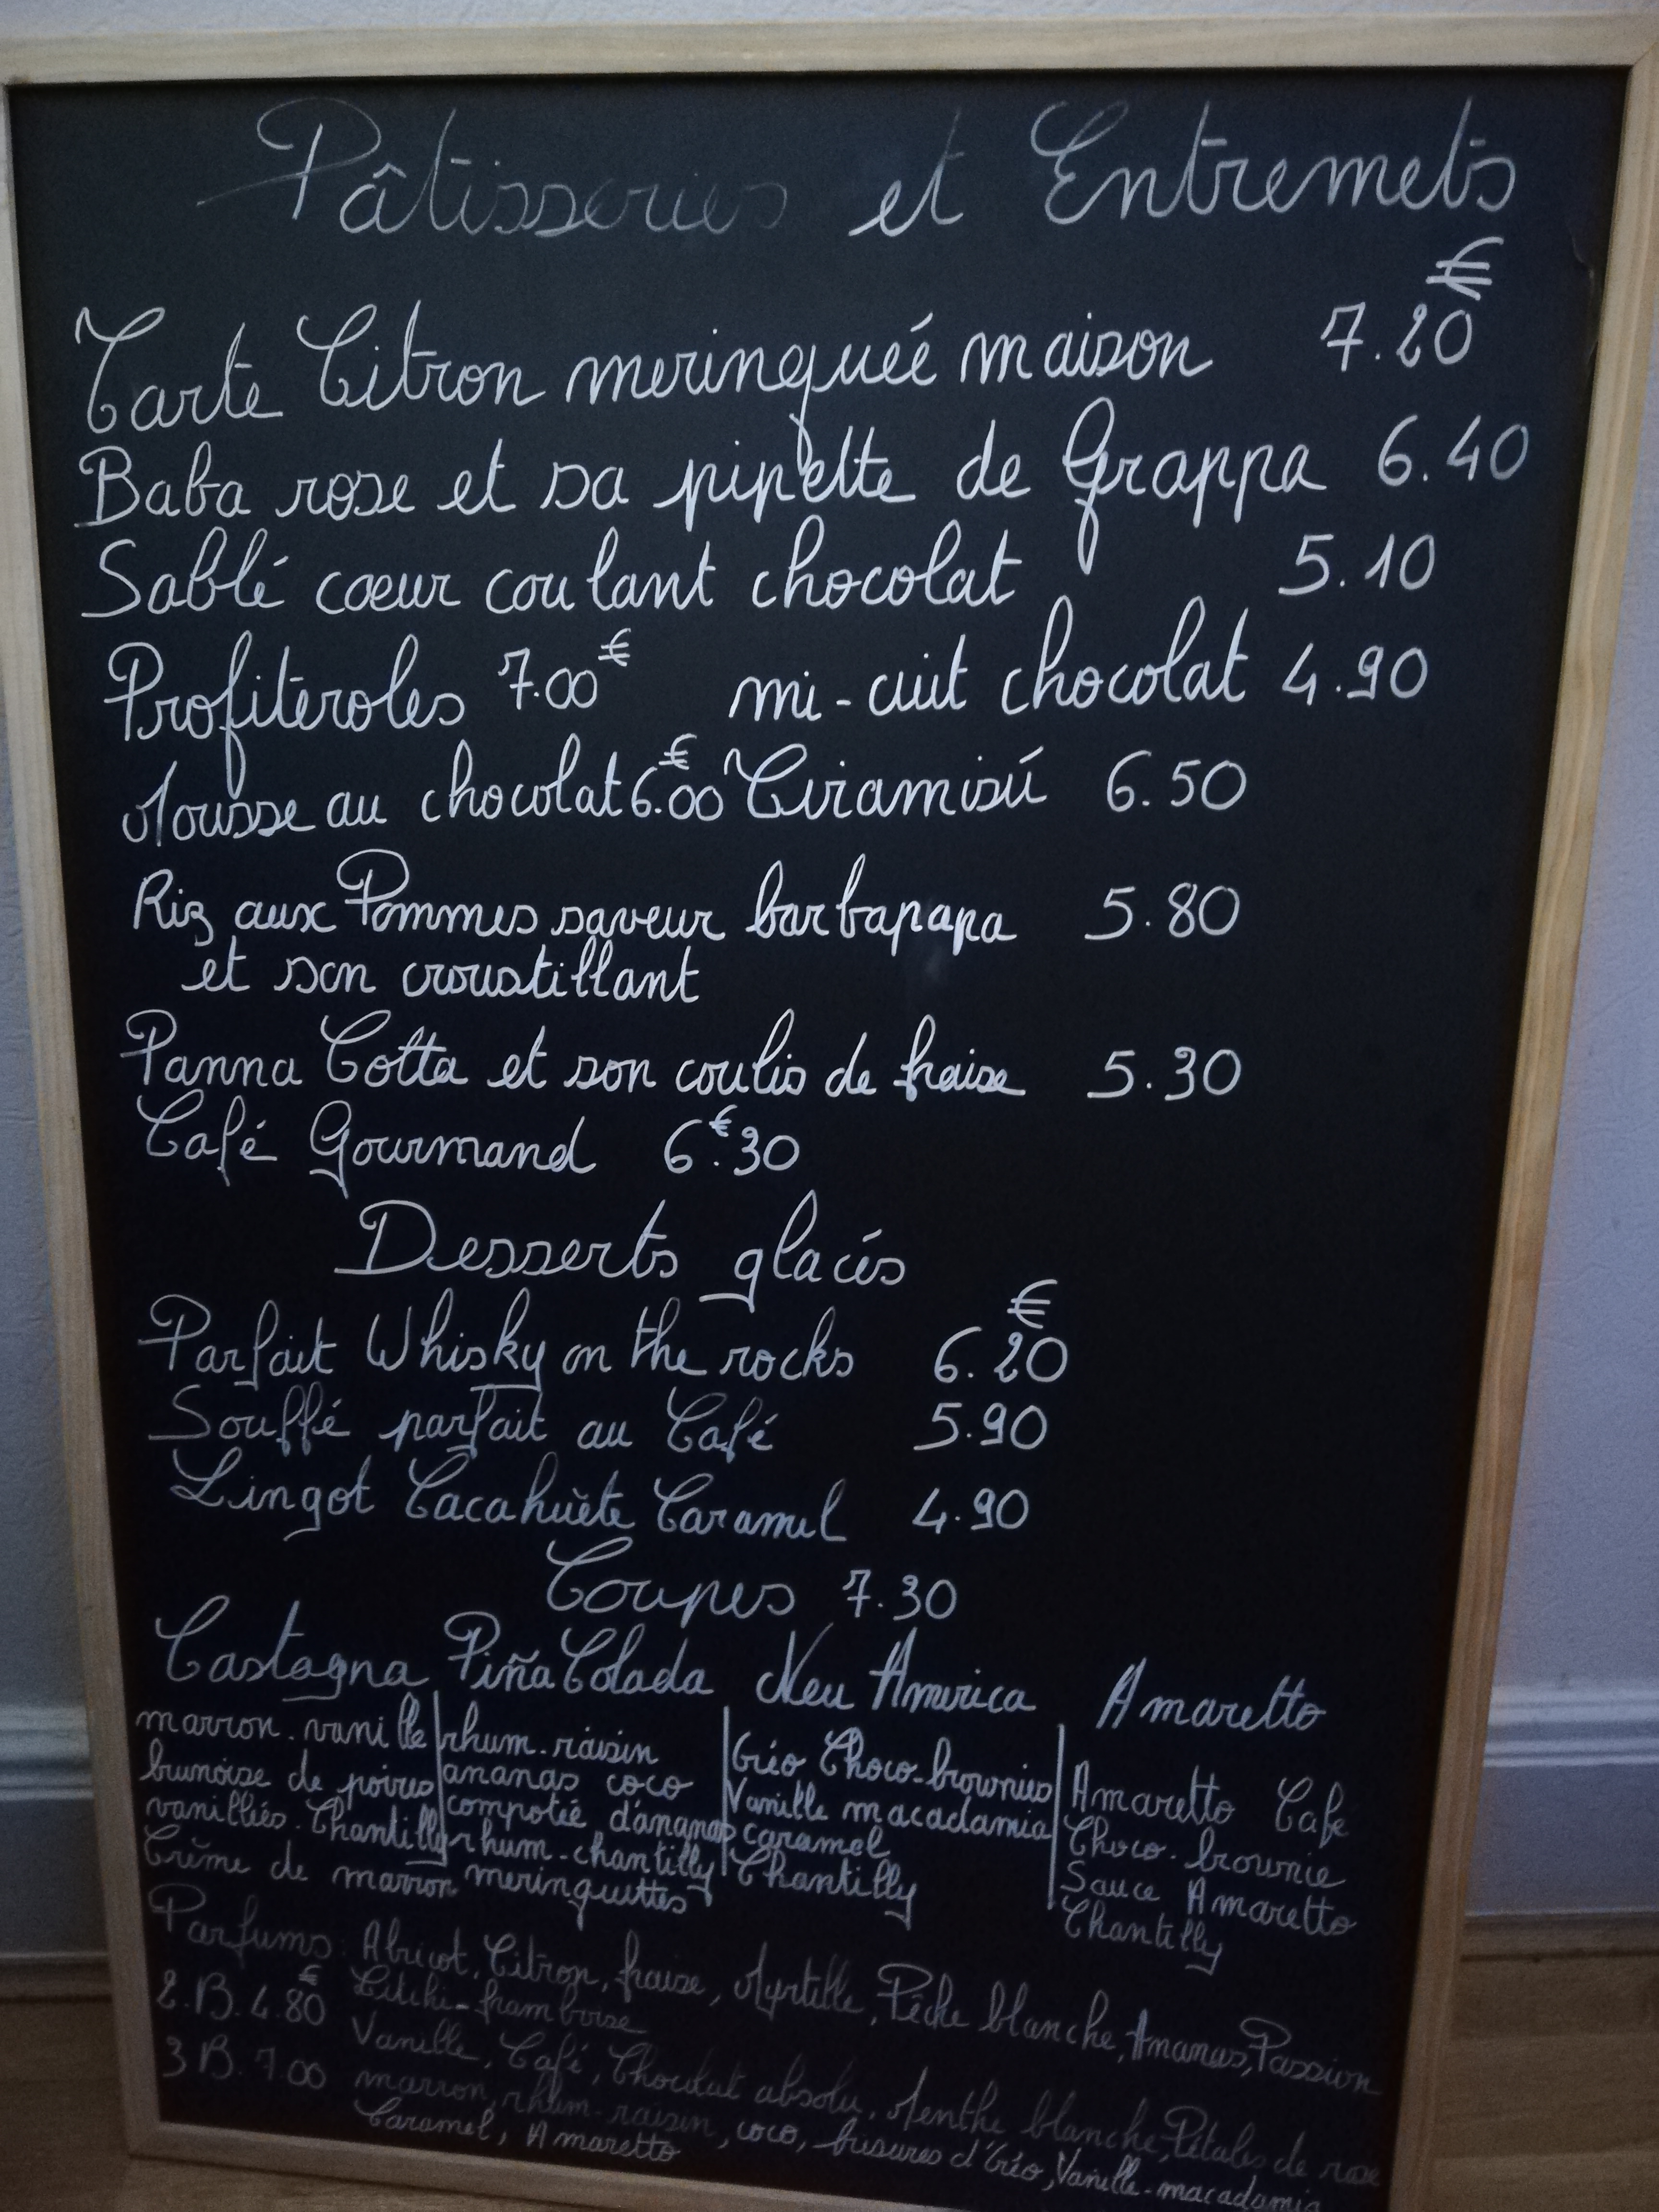 Pâtisseries et Entremets
€
Tarte Citron meringueé maison 7.20
Baba rose et sa pipette de Grappa 6.40
Sablé cœur coulant chocolat 5.10
Profiteroles 7.00€ mi-cuit chocolat 4.90
Mousse au chocolat 6.00€ Tiramisú 6.50
Riz aux Pommes saveur barbapapa 5.80
et son croustillant
Panna Cotta et son coulis de fraise 5.30
Café Gourmand 6€.30
Desserts glacés
€
Parfait Whisky on the rocks 6.20
Souffé parfait au Café 5.90
Lingot Cacahuète Caramel 4.90
Coupes 7.30
Castagna Piña Colada New America Amaretto
marron-vanille
brunoise de poires
vanillées. Chantilly
Crème de marron
rhum-raisin
ananas coco
compotée d'ananas
rhum-chantilly
meringuettes
Oréo Choco-brownies
Vanille macadamia
caramel
Chantilly
Amaretto Cafe
Choco-brownie
Sauce Amaretto
Chantilly
Parfums: Abricot, Citron, fraise, Myrtille, Pêche blanche, Ananas, Passion
2.B. 4.80€ Litchi-framboise
Vanille, Café, Chocolat absolu, Menthe blanche, Pétales de rose
3 B. 7.00 marron, rhum-raisin, coco, brisures d'Oréo, Vanille-macadamia
Caramel, Amaretto